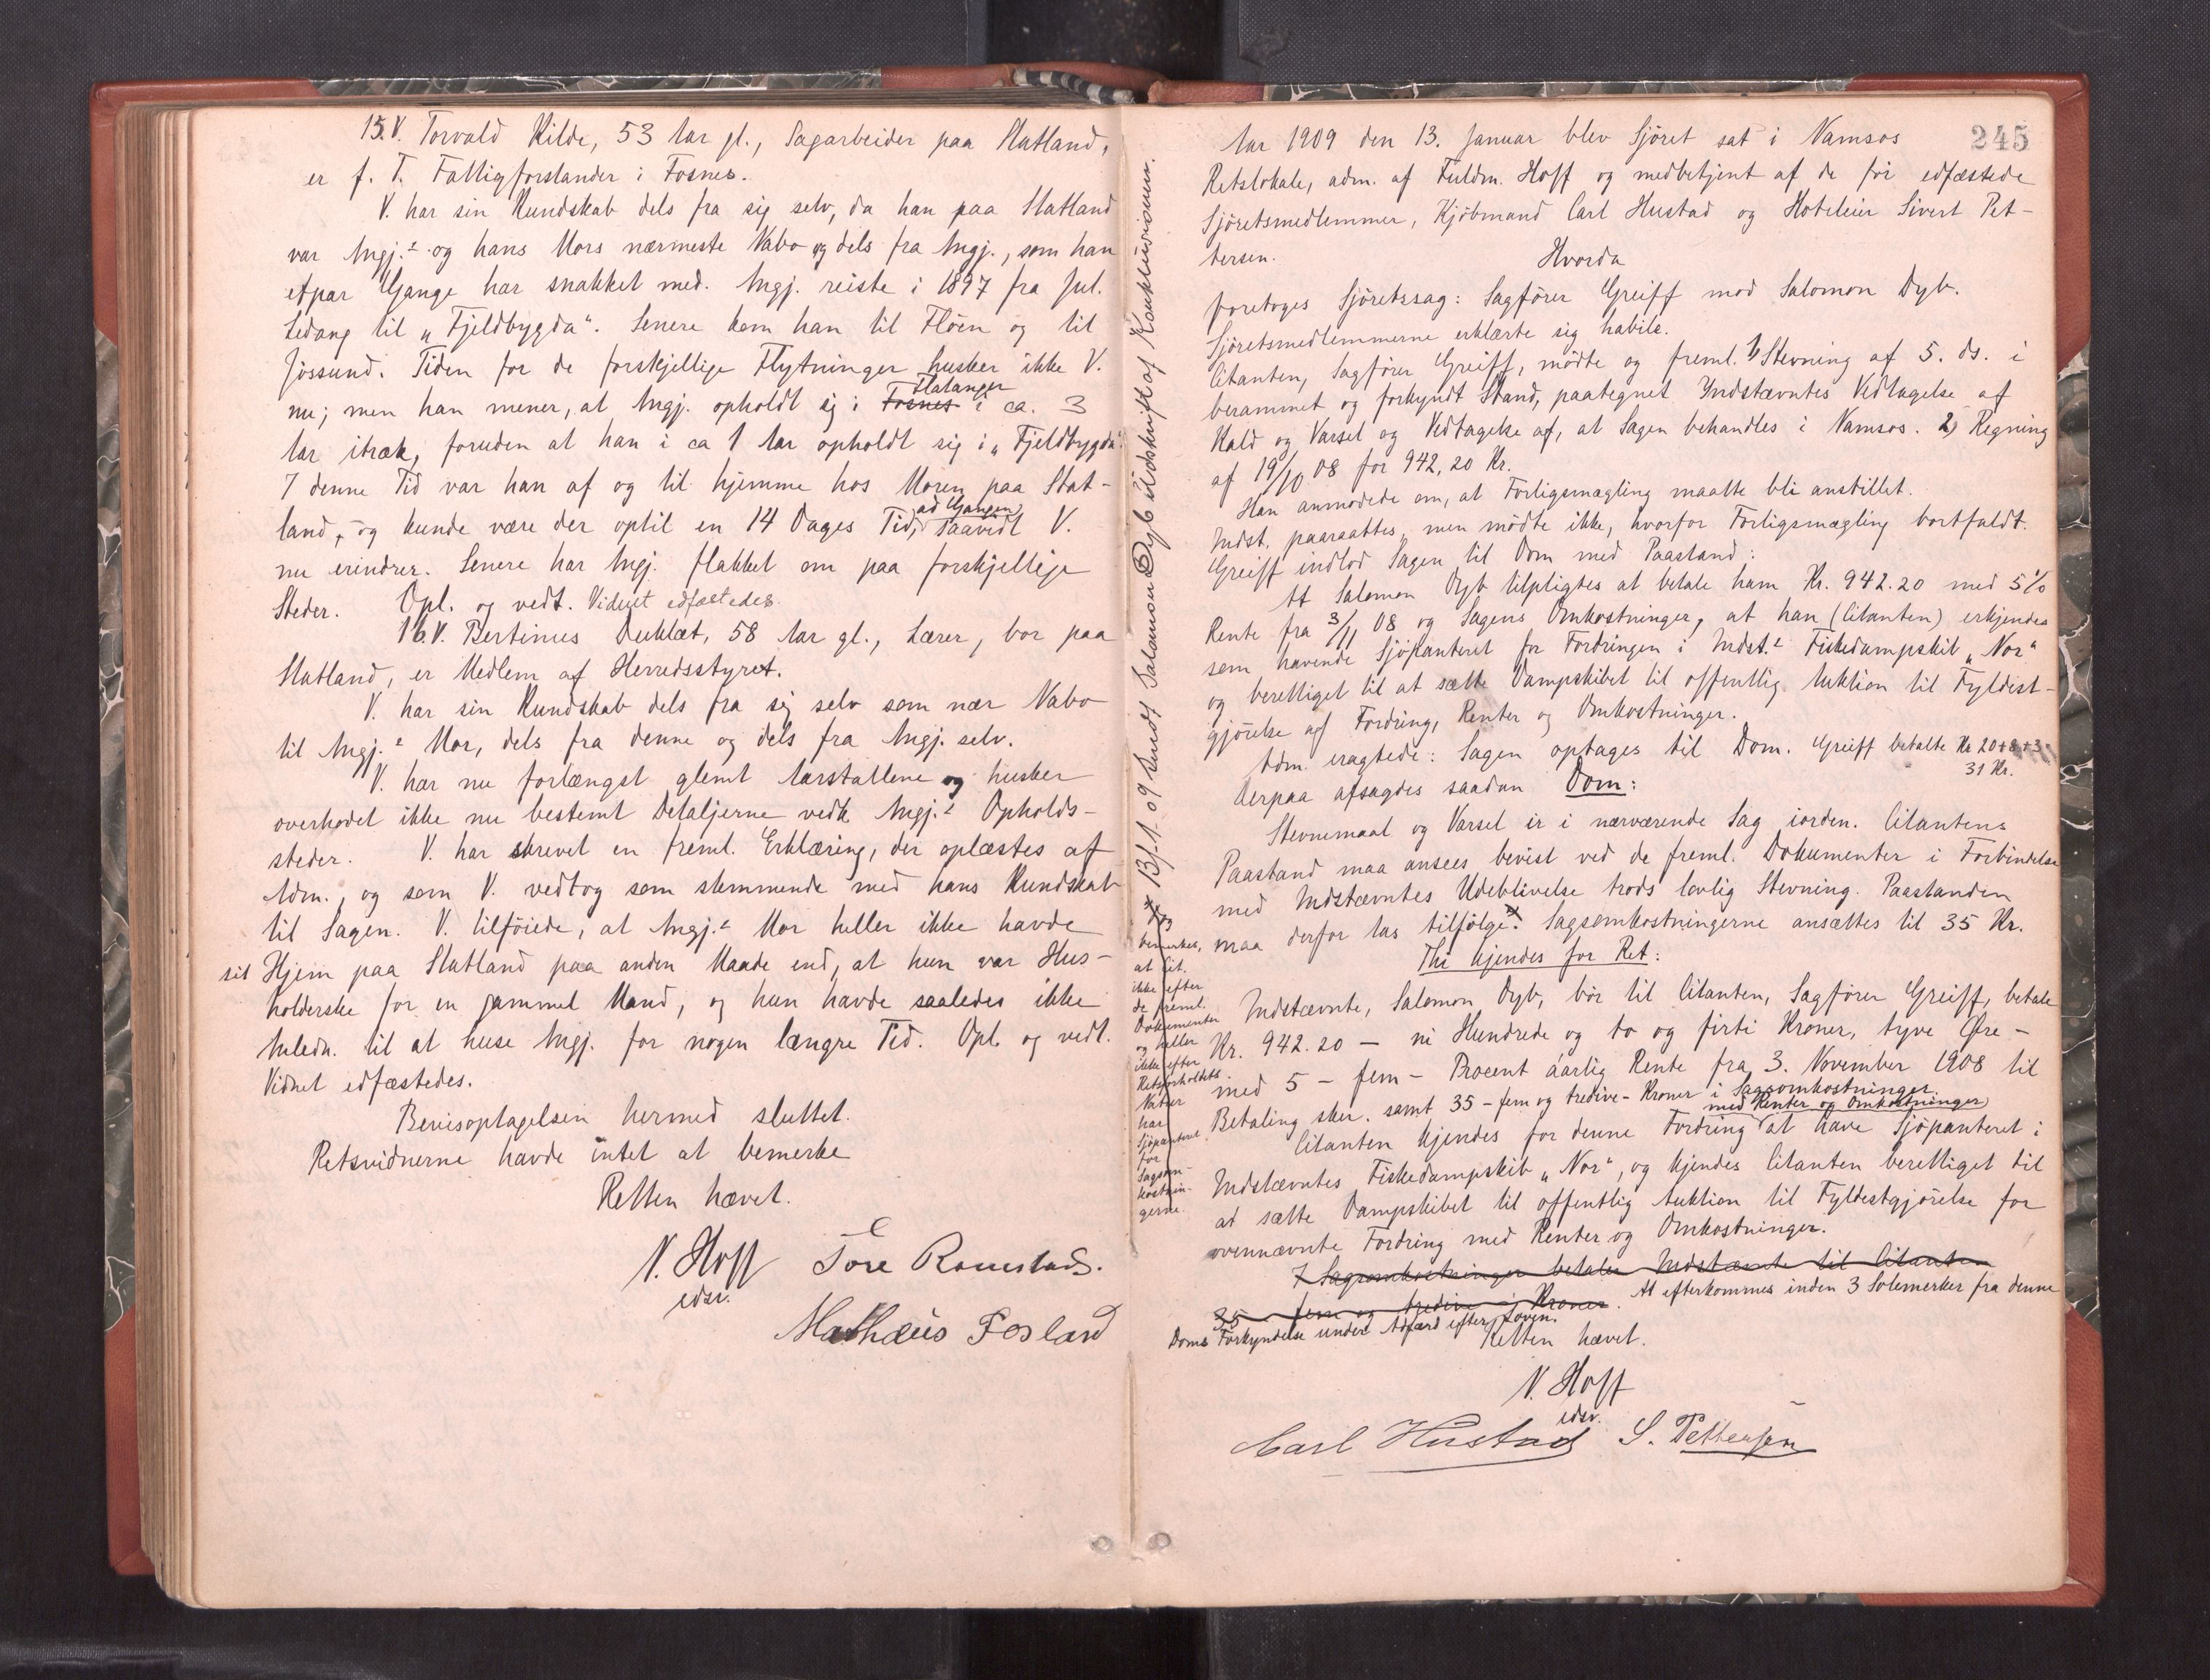 15.V. Torvald Kilde, 53 Aar gl., Sagarbeider paa Statland,
er f. T. Fattigforstander i Fosnes.
V. har sin Kundskab dels fra sig selv, da han paa Statland
var Angj.s og hans Mors nærmeste Nabo og dels fra Angj., som han
etpar Gange har snakket med. Angj. reiste i 1897 fra Jul.
Ledang til „Fjeldbygda“. Senere kom han til Flöen og til
Jössund. Tiden for de forskjellige Flytninger husker ikke V.
nu; men han mener, at Angj. opholdt sig i Fosnes Flatanger i ca. 3
Aar itræk, foruden at han i ca 1 Aar opholdt sig i „Fjeldbygda“.
I denne Tid var han af og til hjemme hos Moren paa Stat-
land, og kunde være der optil en 14 Dages Tid, ad Gangen, saavidt V.
nu erindrer. Senere har Angj. flakket om paa forskjellige
Steder. Opl. og vedt. Vidnet edfæstedes.
16.V. Bertinus Duklæt, 58 Aar gl., Lærer, bor paa
Statland, er Medlem af Herredsstyret.
V. har sin Kundskab dels fra sig selv som nær Nabo
til Angj.s Mor, dels fra denne og dels fra Angj. selv.
V. har nu forlængst glemt Aarstallene og husker
overhodet ikke nu bestemt Detaljerne vedk. Angj.s Opholds-
steder. V. har skrevet en freml. Erklæring, der oplæstes af
Adm., og som V. vedtog som stemmende med hans Kundskab
til Sagen. V. tilföiede, at Angj.s Mor heller ikke havde
sit Hjem paa Statland paa anden Maade end, at hun var Hus-
holderske for en gammel Mand, og hun havde saaledes ikke
Anledn. til at huse Angj. for nogen længre Tid. Opl. og vedt.
Vidnet edfæstedes.
Bevisoptagelsen hermed sluttet.
Retsvidnerne havde intet at bemerke
Retten hævet.
N. Hoff Tore Romstad.
edsv.
Mathæus Fosland
Bf. 1. og Kundt Salomon Dyb Udskrift af Konklusionen.
245
Aar 1909 den 13. Januar blev Sjöret sat i Namsos
Retslokale, adm. af Fuldm. Hoff og medbetjent af de för edfæstede
Sjöretsmedlemmer, Kjöbmand Carl Hustad og Hoteleier Sivert Pet-
tersen.
Hvorda
foretoges Sjöretssag: Sagförer Greiff mod Salomon Dyb.
Sjöretsmedlemmerne erklærte sig habile.
Citanten, Sagförer Greiff, mödte og freml. 1) Stevning af 5. ds. i
berammet og forkyndt Stand, paategnet Indstævntes Vedtagelse af
Kald og Varsel og Vedtagelse af, at Sagen behandles i Namsos. 2) Regning
af 19/10 08 for 942,20 Kr.
Han anmodede om, at Forligsmægling maatte bli anstillet.
Indst. paaraabtes, men mödte ikke, hvorfor Forligsmægling bortfaldt.
Greiff indlod Sagen til Dom med Paastand:
At Salomon Dyb tilpligtes at betale ham Kr. 942.20 med 5%
Rente fra 3/11 08 og Sagens Omkostninger, at han (Citanten) erkjendes
som havende Sjöpanteret for Fordringen i Indst.s Fiskedampskib „Nor“
og berettiget til at sætte Dampskibet til offentlig Auktion til Fyldest-
gjörelse af Fordring, Renter og Omkostninger.
Adm. eragtede: Sagen optages til Dom. Greiff betalte Kr 20+8+3
31 Kr.
Derpaa afsagdes saadan Dom:
Stevnemaal og Varsel er i nærværende Sag iorden. Citantens
Paastand maa ansees bevist ved de freml. Dokumenter i Forbindelse
med Indstævntes Udeblivelse trods lovlig Stevning. Paastanden
maa derfor tas tilfölge. Sagsomkostningerne ansættes til 35 Kr.
bemerkes,
at Cit.
ikke efter
de freml.
Dokumenter
og heller
ikke efter
Retsforholdets
Natur
har
Sjöpanteret
for
Sagsom-
kostnin-
gerne.
Thi kjendes for Ret:
Indstævnte, Salomon Dyb, bör til Citanten, Sagförer Greiff, betale
Kr. 942.20 – ni Hundrede og to og firti Kroner, tyve Øre –
med 5 – fem – Procent aarlig Rente fra 3. November 1908 til
Betaling sker. samt 35 – fem og tredive – Kroner i Sagsomkostninger.
med Renter og Omkostninger
Citanten kjendes for denne Fordring at have Sjöpanteret i
Indstævntes Fiskedampskib „Nor“, og kjendes Citanten berettiget til
at sætte Dampskibet til offentlig Auktion til Fyldestgjörelse for
ovennævnte Fordring med Renter og Omkostninger.
I Sagsomkostninger betaler Indstævnte til Citanten
35 – fem og tredive – Kroner. At efterkommes inden 3 Solemerker fra denne
Doms Forkyndelse under Adfærd efter Loven.
Retten hævet.
N. Hoff
edsv.
Carl Hustad S. Pettersen